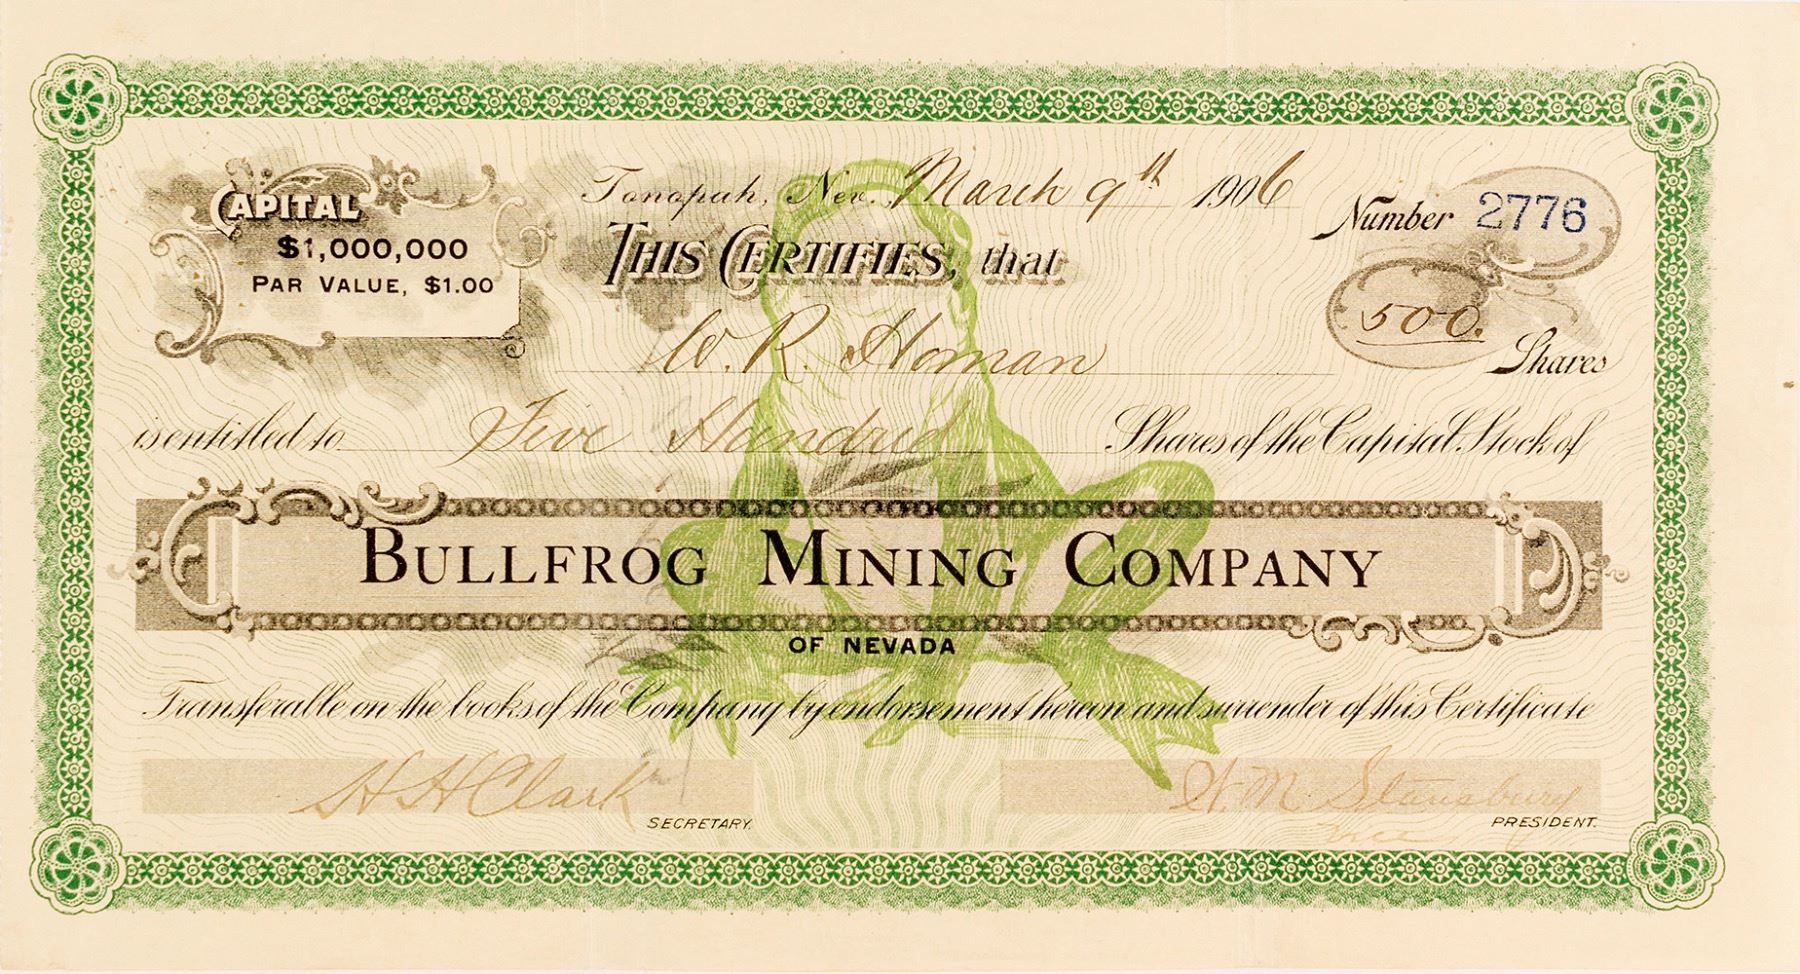 Tonopah, Nev. March 9th 1906
CAPITAL
$1,000,000
PAR VALUE, $1.00
Number 2776
THIS CERTIFIES, that
500. Shares
W. R. Homan
is entitled to Five Hundred Shares of the Capital Stock of
BULLFROG MINING COMPANY
OF NEVADA
Transferable on the books of the Company by endorsement hereon and surrender of this Certificate
H H Clark
SECRETARY.
W. M. Stansbury
PRESIDENT.